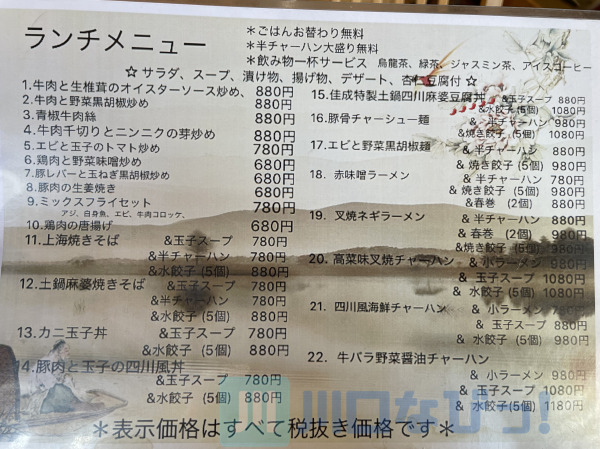 ランチメニュー
＊ごはんお替わり無料
＊半チャーハン大盛り無料
＊飲み物一杯サービス 烏龍茶、緑茶、ジャスミン茶、アイスコーヒー
☆ サラダ、スープ、漬け物、揚げ物、デザート、杏仁豆腐付 ☆
1.牛肉と生椎茸のオイスターソース炒め、 880円
2.牛肉と野菜黒胡椒炒め 880円
3.青椒牛肉絲 880円
4.牛肉千切りとニンニクの芽炒め 880円
5.エビと玉子のトマト炒め 780円
6.鶏肉と野菜味噌炒め 680円
7.豚レバーと玉ねぎ黒胡椒炒め 680円
8.豚肉の生姜焼き 680円
9.ミックスフライセット 780円
アジ、白身魚、エビ、牛肉コロッケ、
10.鶏肉の唐揚げ 680円
11.上海焼きそば &玉子スープ 780円
&半チャーハン 780円
&水餃子 (5個) 880円
12.土鍋麻婆焼きそば &玉子スープ 780円
&半チャーハン 780円
&水餃子 (5個) 880円
13.カニ玉子丼 &玉子スープ 780円
&水餃子 (5個) 880円
14.豚肉と玉子の四川風丼
&玉子スープ 780円
&水餃子 (5個) 880円
15.佳成特製土鍋四川麻婆豆腐丼 &玉子スープ 880円
&水餃子 (5個) 1080円
16.豚骨チャーシュー麺 & 半チャーハン 980円
&焼き餃子 (5個) 1080円
17.エビと野菜黒胡椒麺 & 半チャーハン 880円
&焼き餃子 (5個) 980円
18. 赤味噌ラーメン & 半チャーハン 780円
& 焼き餃子 (5個) 980円
&春巻 (2個) 880円
19. 叉焼ネギラーメン & 半チャーハン 880円
& 春巻 (2個) 980円
&焼き餃子 (5個) 980円
20. 高菜味叉焼チャーハン & 小ラーメン 980円
& 玉子スープ 1080円
& 水餃子 (5個) 1080円
21. 四川風海鮮チャーハン & 小ラーメン 780円
& 玉子スープ 880円
& 水餃子 (5個) 980円
22. 牛バラ野菜醤油チャーハン
& 小ラーメン 980円
& 玉子スープ 1080円
& 水餃子(5個) 1180円
川口なびっ！
＊表示価格はすべて税抜き価格です＊